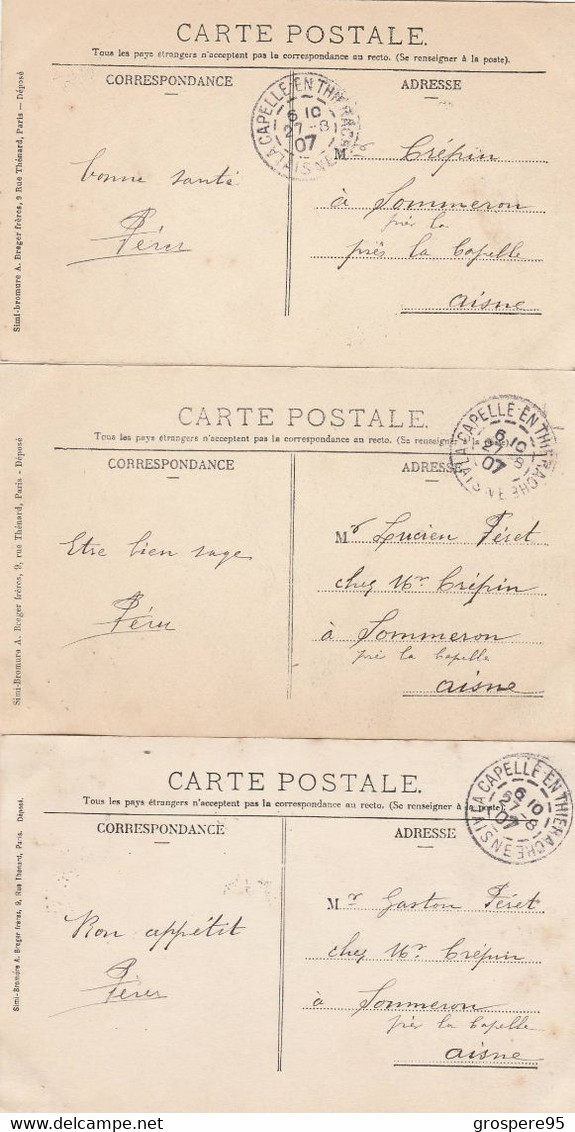 CARTE POSTALE.
Tous les pays étrangers n'acceptent pas la correspondance au recto. (Se renseigner à la poste).
CORRESPONDANCE
ADRESSE
LA CAPELLE-EN-THIERACHE
AISNE
6 10
27-8
07
Simi-bromure A. Breger frères, 9 Rue Thénard, Paris — Déposé
bonne santé
Mr Crépin
à Sommeron
près la
près la Capelle
Aisne
CARTE POSTALE.
Tous les pays étrangers n'acceptent pas la correspondance au recto. (Se renseigner à la poste).
CORRESPONDANCE
ADRESSE
LA CAPELLE-EN-THIERACHE
AISNE
6 10
27-8
07
Simi-Bromure A. Breger frères, 9, rue Thénard, Paris - Déposé
Etre bien sage
Mr Lucien Péret
chez Mr Crépin
à Sommeron
près la Capelle
Aisne
CARTE POSTALE.
Tous les pays étrangers n'acceptent pas la correspondance au recto. (Se renseigner à la poste)
CORRESPONDANCE
ADRESSE
LA CAPELLE-EN-THIERACHE
AISNE
6 10
27-8
07
Simi-Bromure A. Breger frères, 9, Rue Thénard, Paris. Déposé.
Bon appétit
Mr Gaston Péret
chez Mr Crépin
à Sommeron
près la Capelle
Aisne
© grospere95